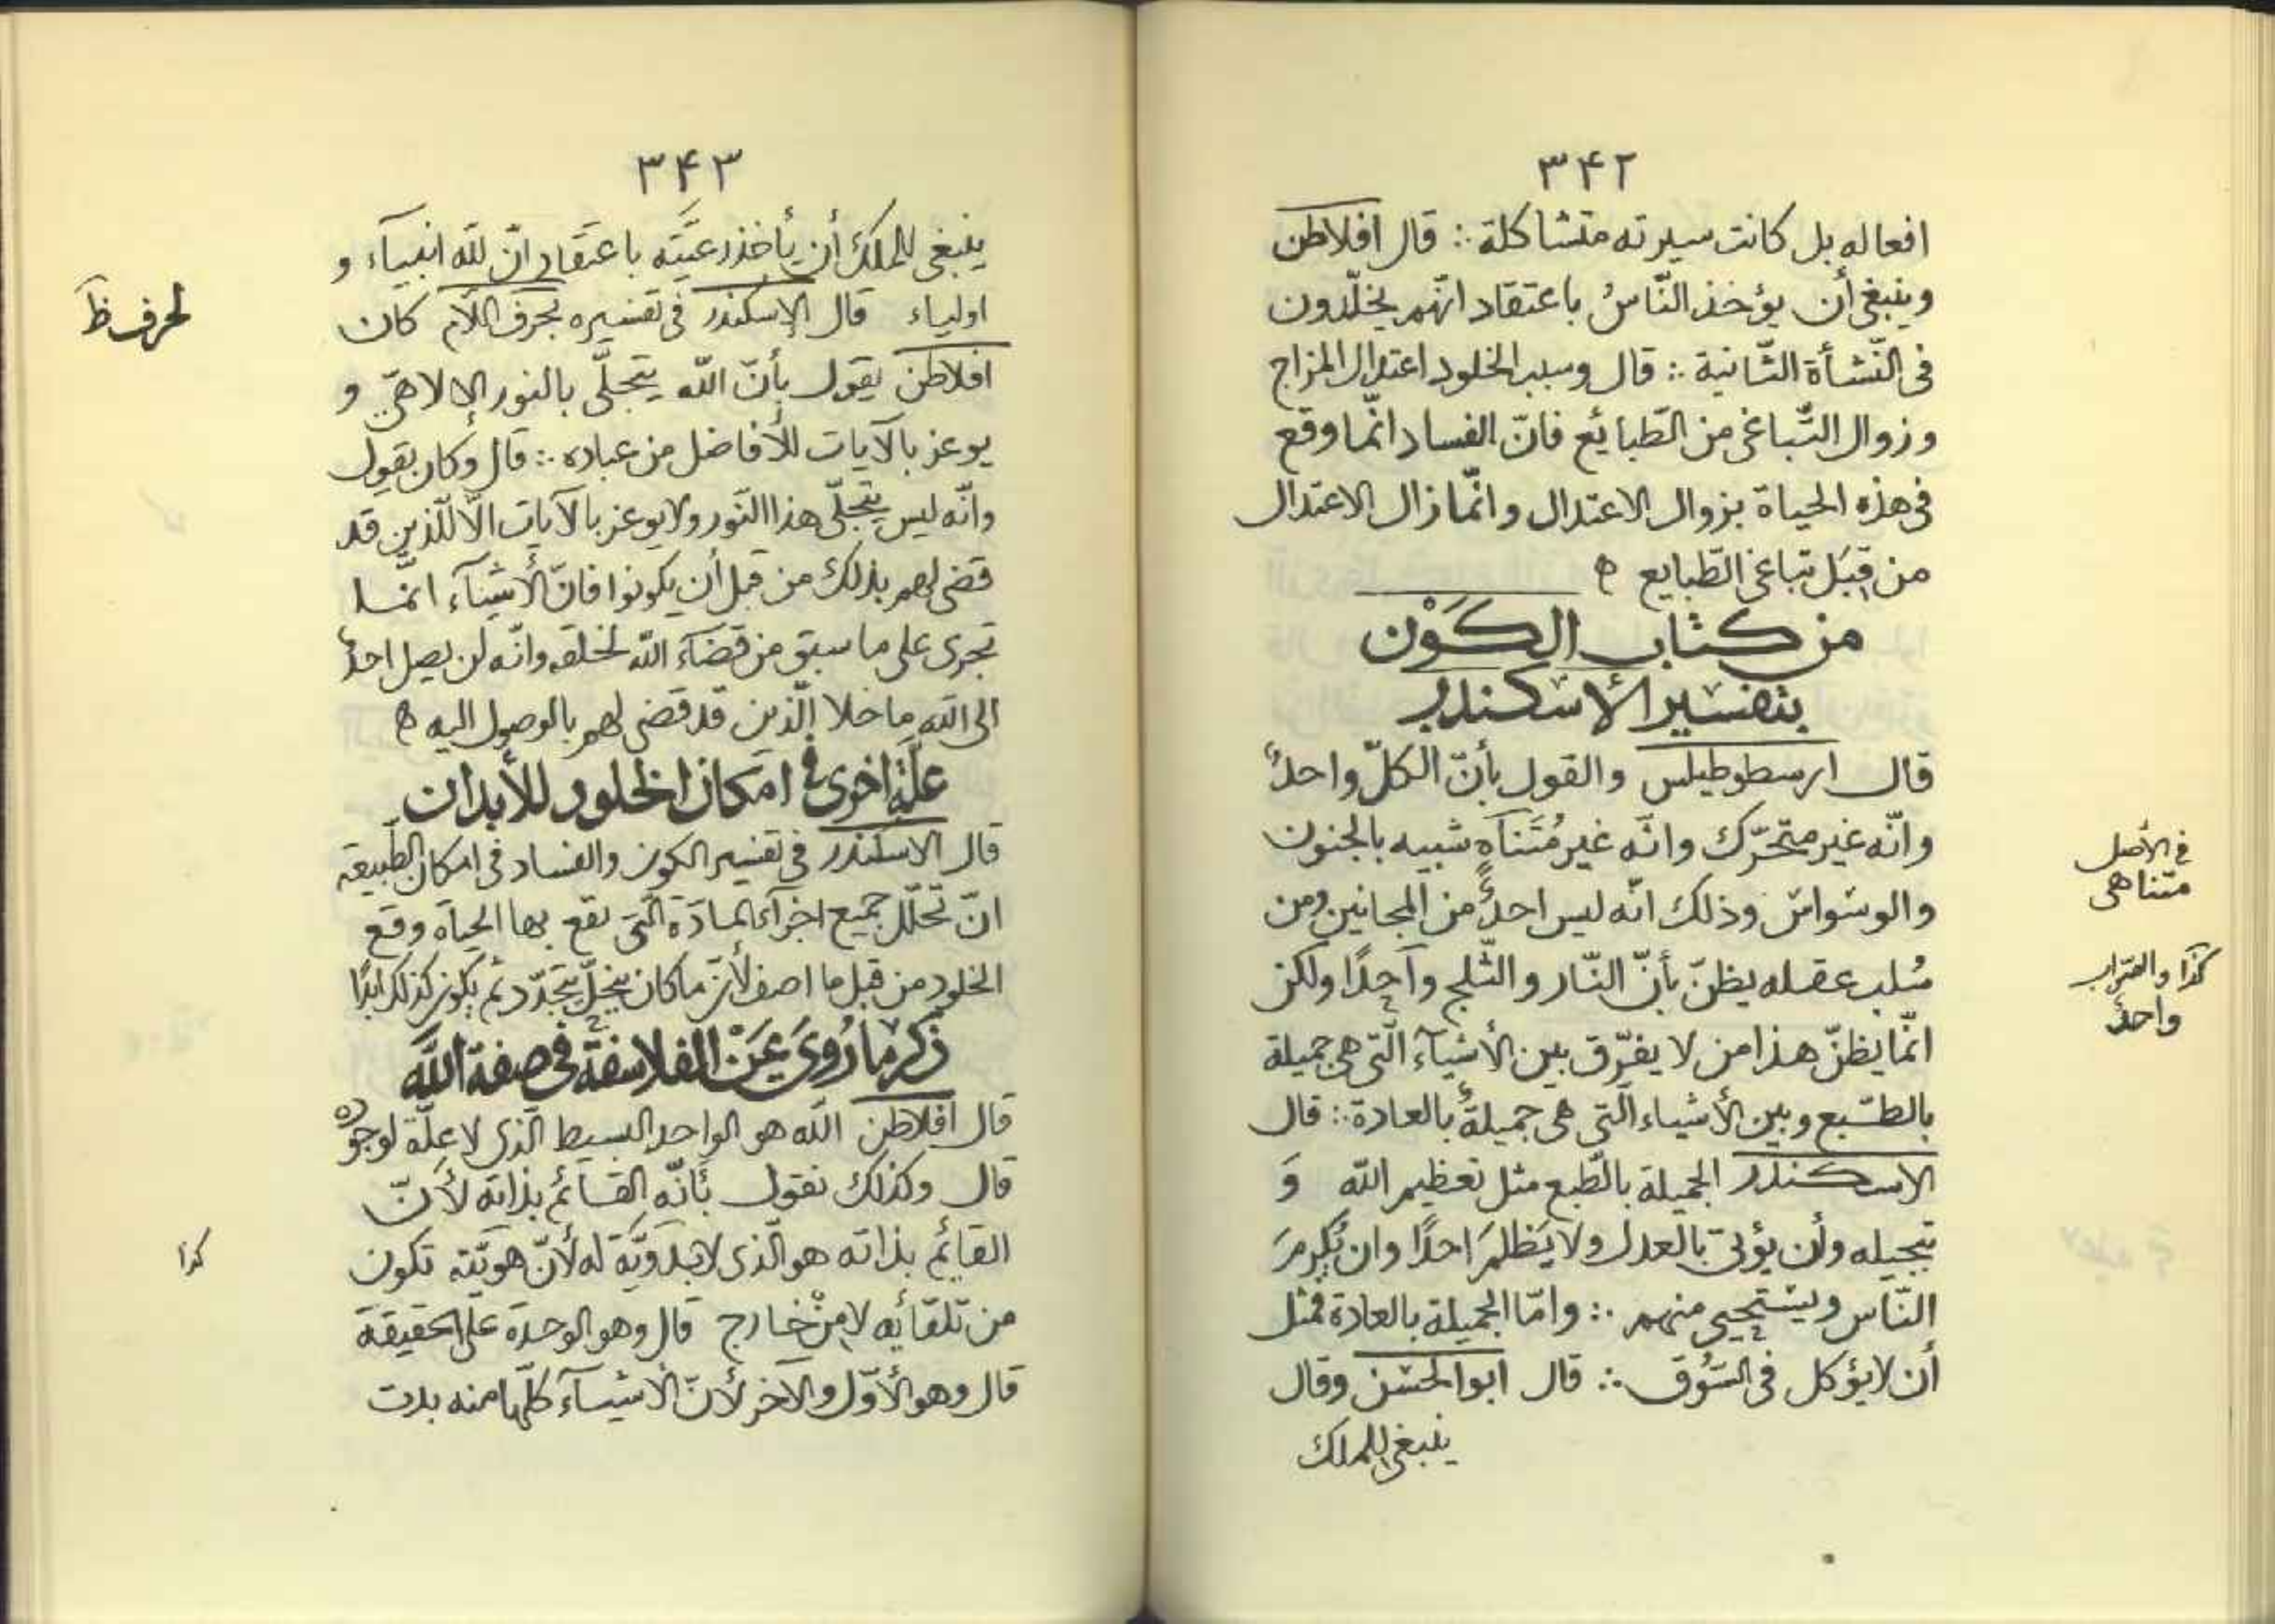 ٣۴٢
افعاله بل كانت سيرته متشاكلة ∴ قال افلاطن
وينبغى أن يؤخذ النّاسُ باعتقاد انّهم يخلّدون
فى النّشأة الثّانية ∴ قال وسبب الخلود اعتدال المزاج
وزوال التّباغى من الطّبائع فانّ الفساد انّما وقع
فى هذه الحياة بزوال الاعتدال وانّما زال الاعتدال
من قِبَل تباغى الطّبايع ه
من كتاب الكَوْن
بتفسير الأسكندر
قال ارسطوطيلس والقول بأنّ الكلّ واحدٌ
وانّه غير متحّرك وانّه غير مُتَناهٍ شبيه بالجنون
والوسواس وذلك انّه ليس احدٌ من المجانين ومن
سُلب عقله يظنّ بأنّ النّار والثّلج واحدًا ولكن
انّما يظنّ هذا من لا يفرّق بين الأشيآء الّتى هى جميلة
بالطّبع وبين الأشياء الّتى هى جميلةٌ بالعادة ∴ قال
الاسكندر الجميلة بالطّبع مثل تعظيم اللّه وَ
تبجيله وأن يؤتى بالعدل ولا يَظلمَ احدًا وان يُكرمَ
النّاس ويستحيى منهم ∴ وامّا الجميلة بالعادة فمثل
أن لا يؤكل فى السّوق ∴ قال ابوالحسن وقال
ينبغى للملك
فى الأصل
متناهى
كذا والصّواب
واحدٌ
٣۴٣
ينبغى للملك أن يأخذ رعيَّتَه باعتقاد انّ للّه انبيآء و
اولياء قال الاسكندر فى تفسيره بحرف اللّام كان
افلاطن يقول بأنّ اللّه يتجلّى بالنور الالاهىّ و
يوعز بالآيات للأفاضل من عباده ∴ قال وكان يقول
وانّه ليس يتجلّى هذا النّور ولا يوعز بالآيات الّا للّذين قد
قضى لهم بذلك من قبل أن يكونوا فانّ الأشيآء انّما
تجرى على ما سبق من قضآء اللّه لخلقه وانّه لن يصل احدٌ
الى اللّه ما خلا الّذين قد قضى لهم بالوصول اليه ه
علّة اخرى فى امكان الخلود للأبدان
قال الاسكندر فى تفسير الكون والفساد فى امكان الطّبيعة
انّ تحلّل جميع اجزآء المادّة الّتى تقع بها الحياة وقع
الخلود من قبل ما اصف لأنّ ما كان يتحلّل يتجدّد ثم يكون كذلك ابدًا
ذكر ما رُوىَ عَنْ الفلاسفة فى صفة اللَّه
قال افلاطن اللّه هو الواحد البسيط الّذى لا علّة لوجوده
قال وكذلك نقول بأنّه القائم بذاته لأنّ
القايم بذاته هو الّذى لا بدويّة له لأنّ هويّته تكون
من تلقائه لا منْ خارج قال وهو الوحدة على الحقيقة
قال وهو الأوّل والآخر لأنّ الأشيآء كلّها منه بدت
لحرف ظ
كذا